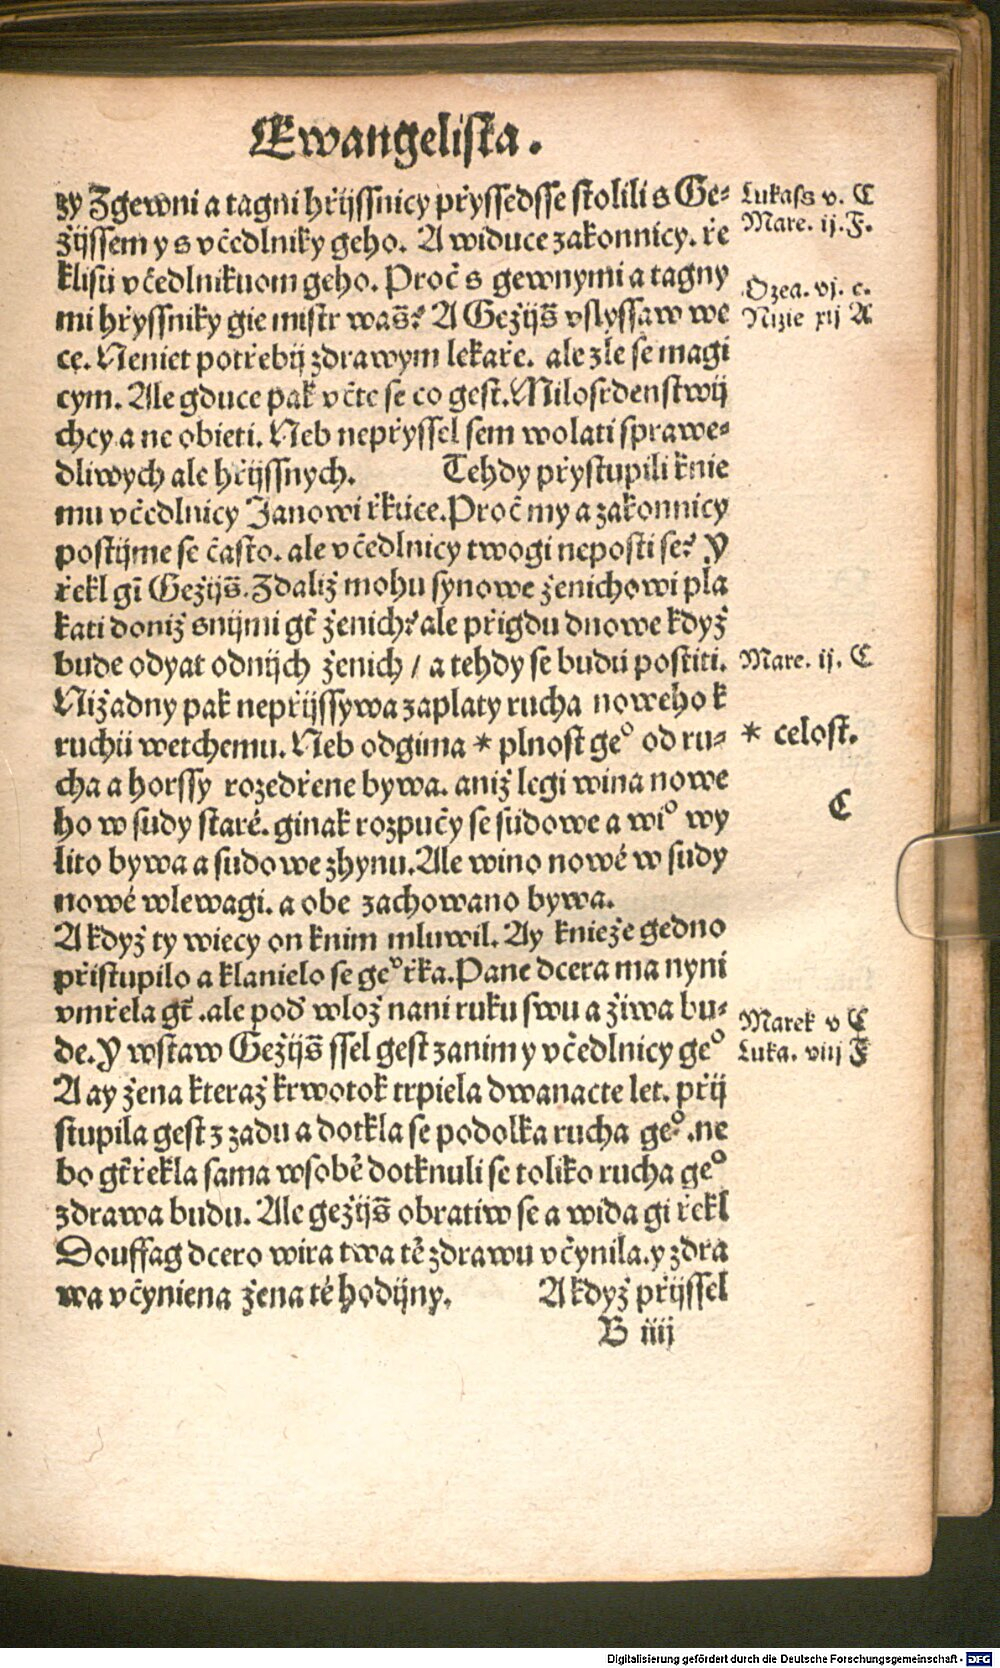 Ewangelista.
zy Zgewni a tagni hřijssnicy přyssedsse stolili s Ge-
žijssem y s včedlniky geho. A widuce zakonnicy. ře
klisú včedlnikuom geho. Proč s gewnymi a tagny
mi hřyssniky gie mistr wass̃? A Gežijs̃ vslyssaw we
ce. Neniet potřebij zdrawym lekaře. ale zle se magi
cym. Ale gduce pak včte se co gest. Milosrdenstwij
chcy a ne obieti. Neb nepřyssel sem wolati sprawe-
dliwych ale hřijssnych. Tehdy přystupili k nie
mu včedlnicy Janowi řkúce. Proč my a zakonnicy
postijme se často. ale včedlnicy twogi neposti se? Y
řekl gi᷉ Gežijs̃. Zdaliž mohu synowe ženichowi pla
kati doniž s nijmi gt̃ ženich? ale přigdu dnowe když
bude odyat od nijch ženich / a tehdy se budú postiti.
Nižadny pak nepřijssywa zaplaty rucha noweho k
ruchu wetchemu. Neb odgima * plnost geº od ru-
cha a horssy rozedřene bywa. aniž legi wina nowe
ho w sudy staré. ginak rozpučy se súdowe a wiº wy
lito bywa a sudowe zhynu. Ale wino nowé w sudy
nowé wlewagi. a obe zachowano bywa.
A když ty wiecy on k nim mluwil. Ay knieže gedno
přistupilo a klanielo se geº řka. Pane dcera ma nyni
vmřela gt̃ . ale pod̕ wlož na ni ruku swu a žiwa bu-
de. Y wstaw Gežijs̃ ssel gest za nim y včedlnicy geº
A ay žena kteraž krwotok trpiela dwanacte let. přij
stupila gest z zadu a dotkla se podolka rucha geº . ne
bo gt̃ řekla sama w sobě dotknuli se toliko rucha geº
zdrawa budu. Ale gežijs̃ obratiw se a wida gi řekl
Douffag dcero wira twa tě zdrawu včynila. y zdra
wa včyniena žena té hodijny. A když přijssel
B iiij
Lukass v. C
Mare. ij. F.
Ozea. vj. c.
Nizie xij A
Mare. ij. C
* celost.
C
Marek v C
Luka. viij F
Digitalisierung gefördert durch die Deutsche Forschungsgemeinschaft - DFG